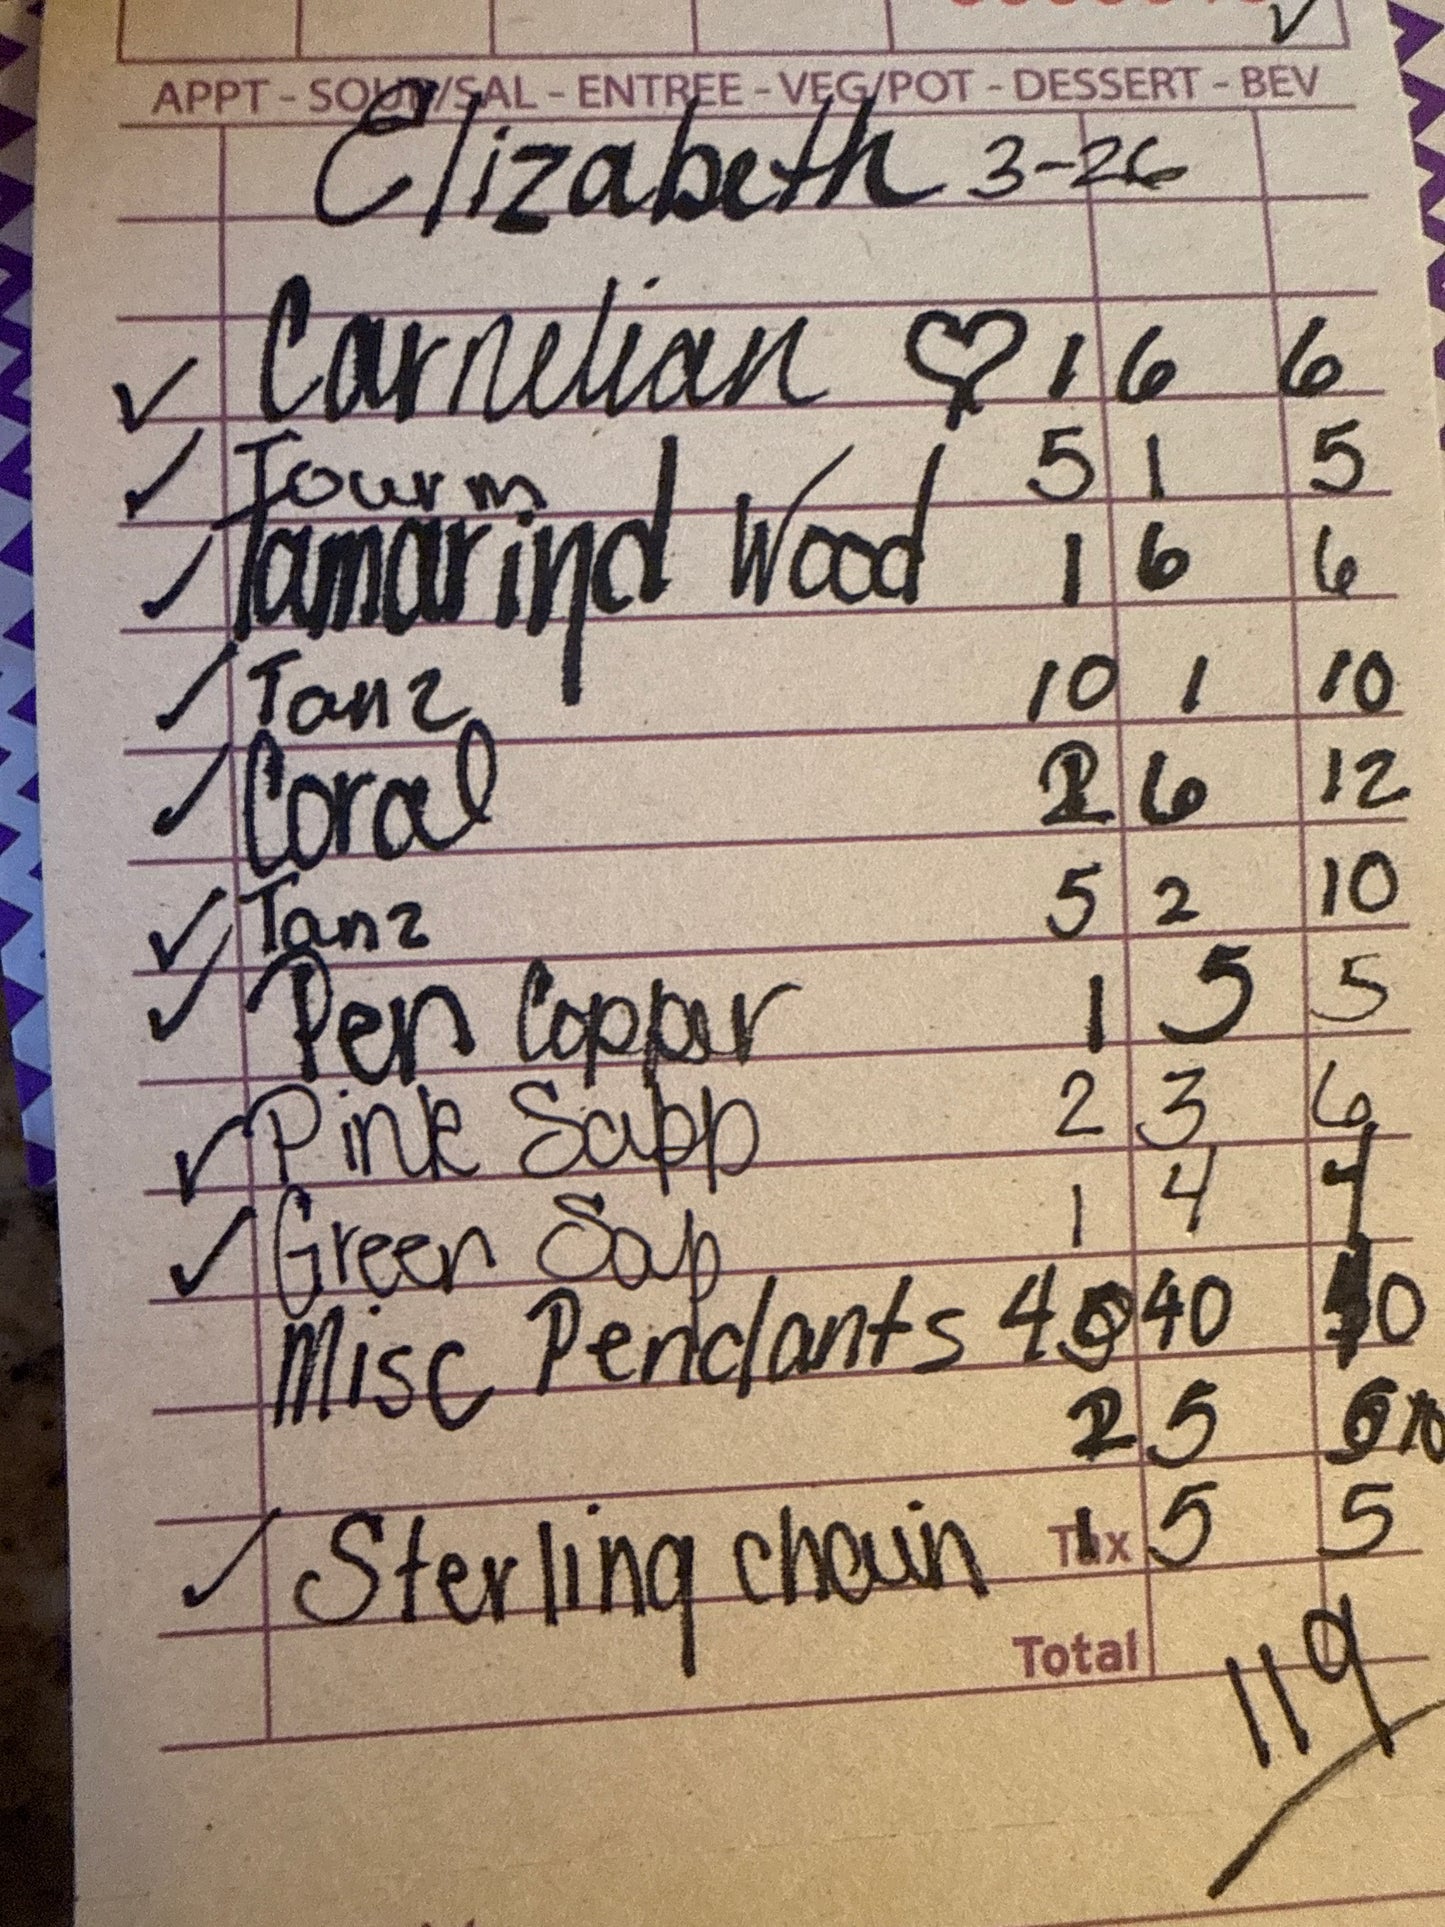 APPT - SOUP/SAL - ENTREE - VEG/POT - DESSERT - BEV
Elizabeth 3-26
✓ Carnelian ♡ 1 6 6
✓ Tourm 5 1 5
✓ Tamarind Wood 1 6 6
✓ Tanz 10 1 10
✓ Coral 2 6 12
✓ Tanz 5 2 10
✓ Pen Copper 1 5 5
✓ Pink Sapp 2 3 6
✓ Green Sap 1 4 4
Misc Pendants 40 40
2 5 10
✓ Sterling chain 1 5 5
Tax
Total 119